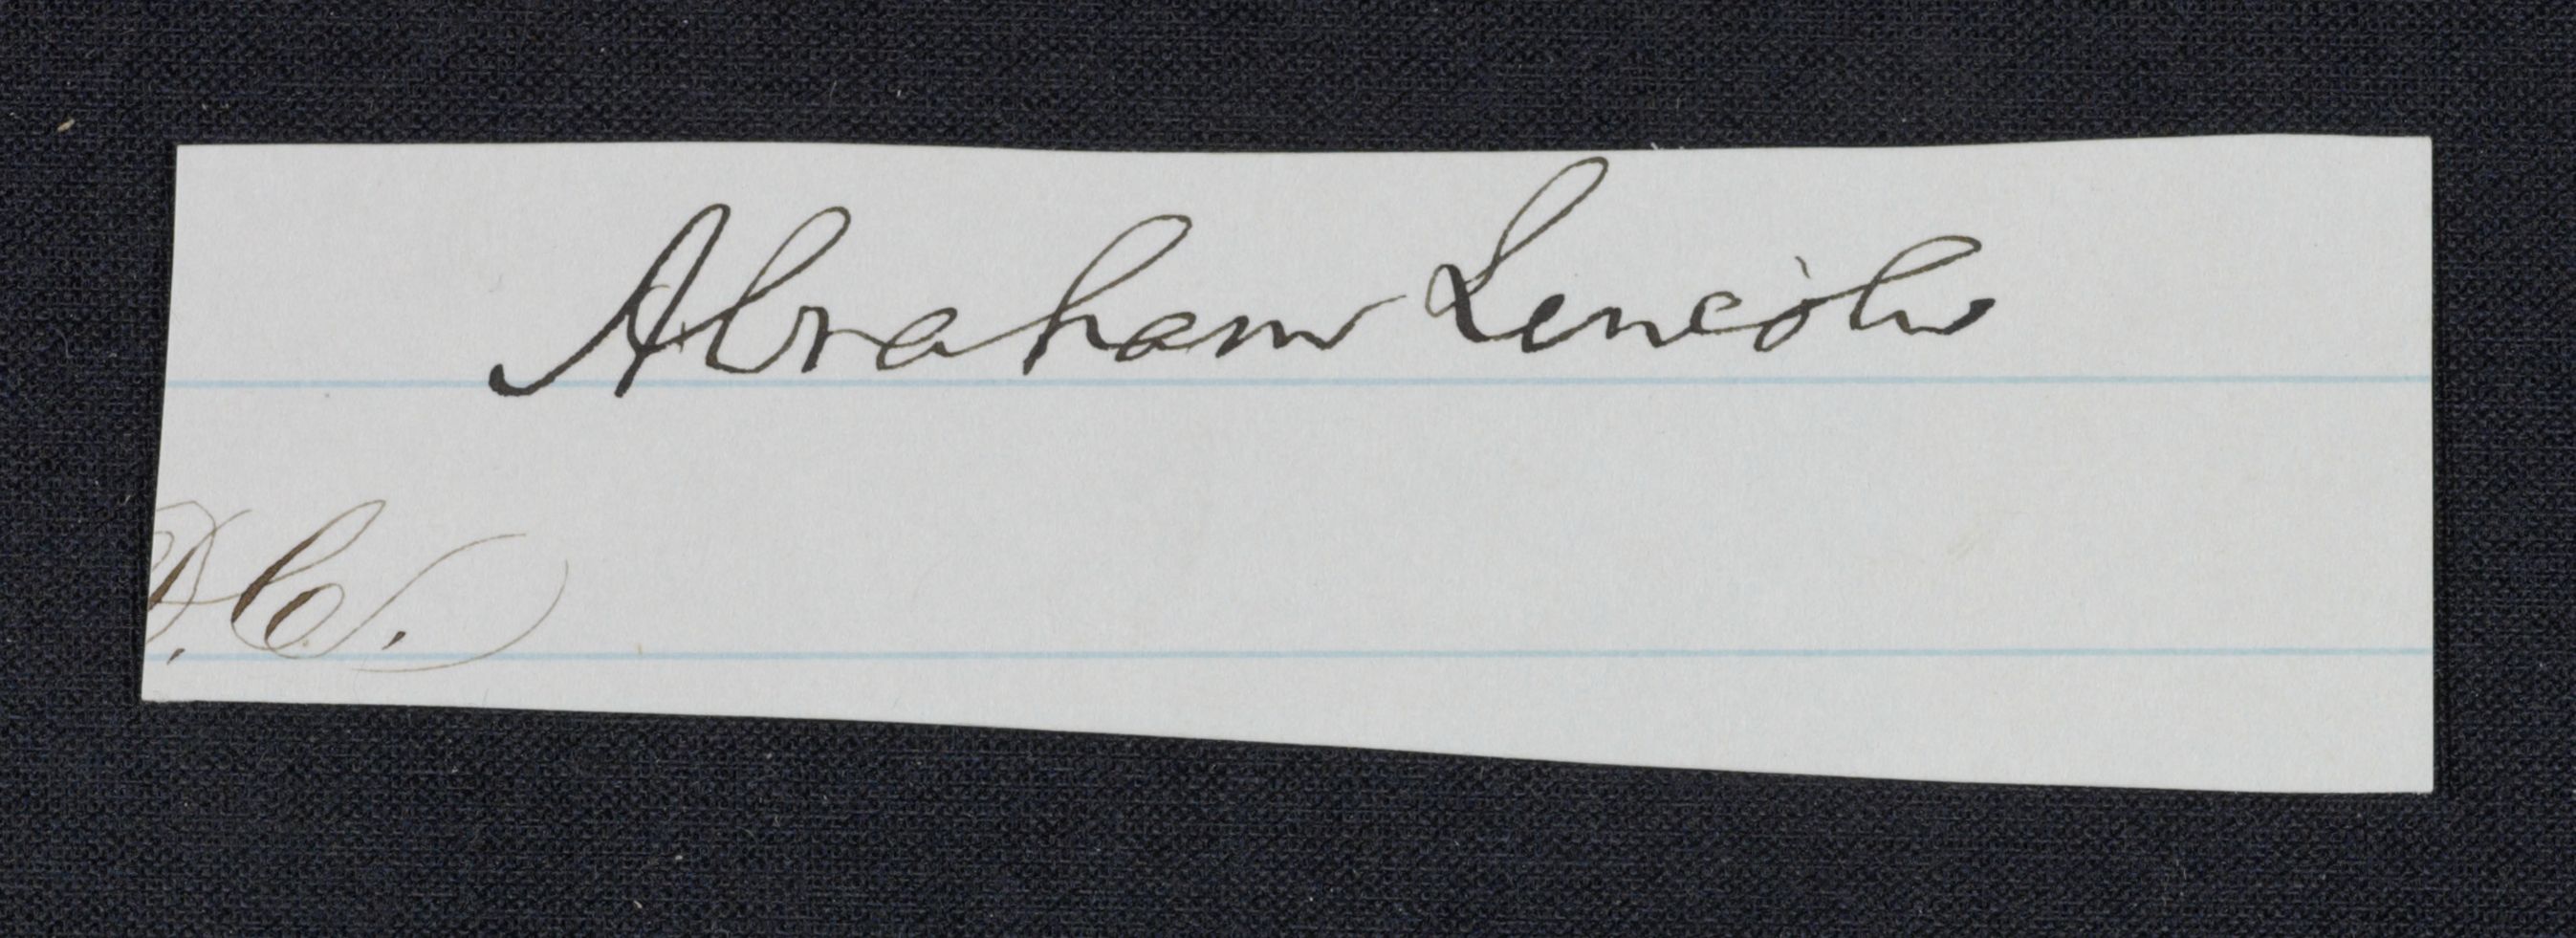 Abraham Lincoln
D.C.